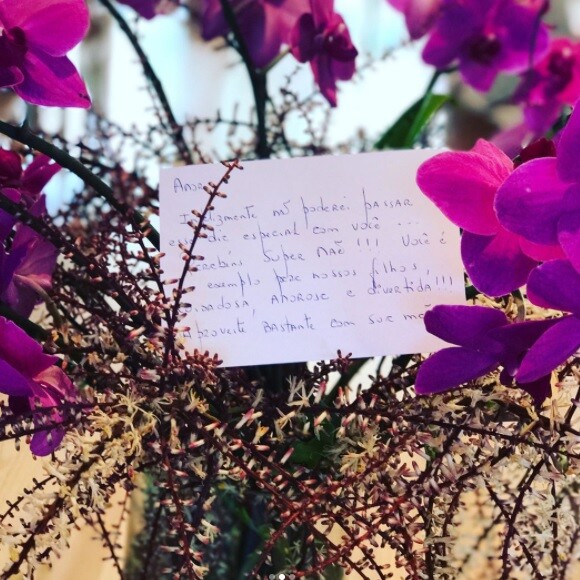 Amor
Infelizmente não poderei passar
dia especial com você ...
Super Mãe!!! Você é
exemplo para nossos filhos,
Amorosa e divertida!!!
Aproveite bastante com sua